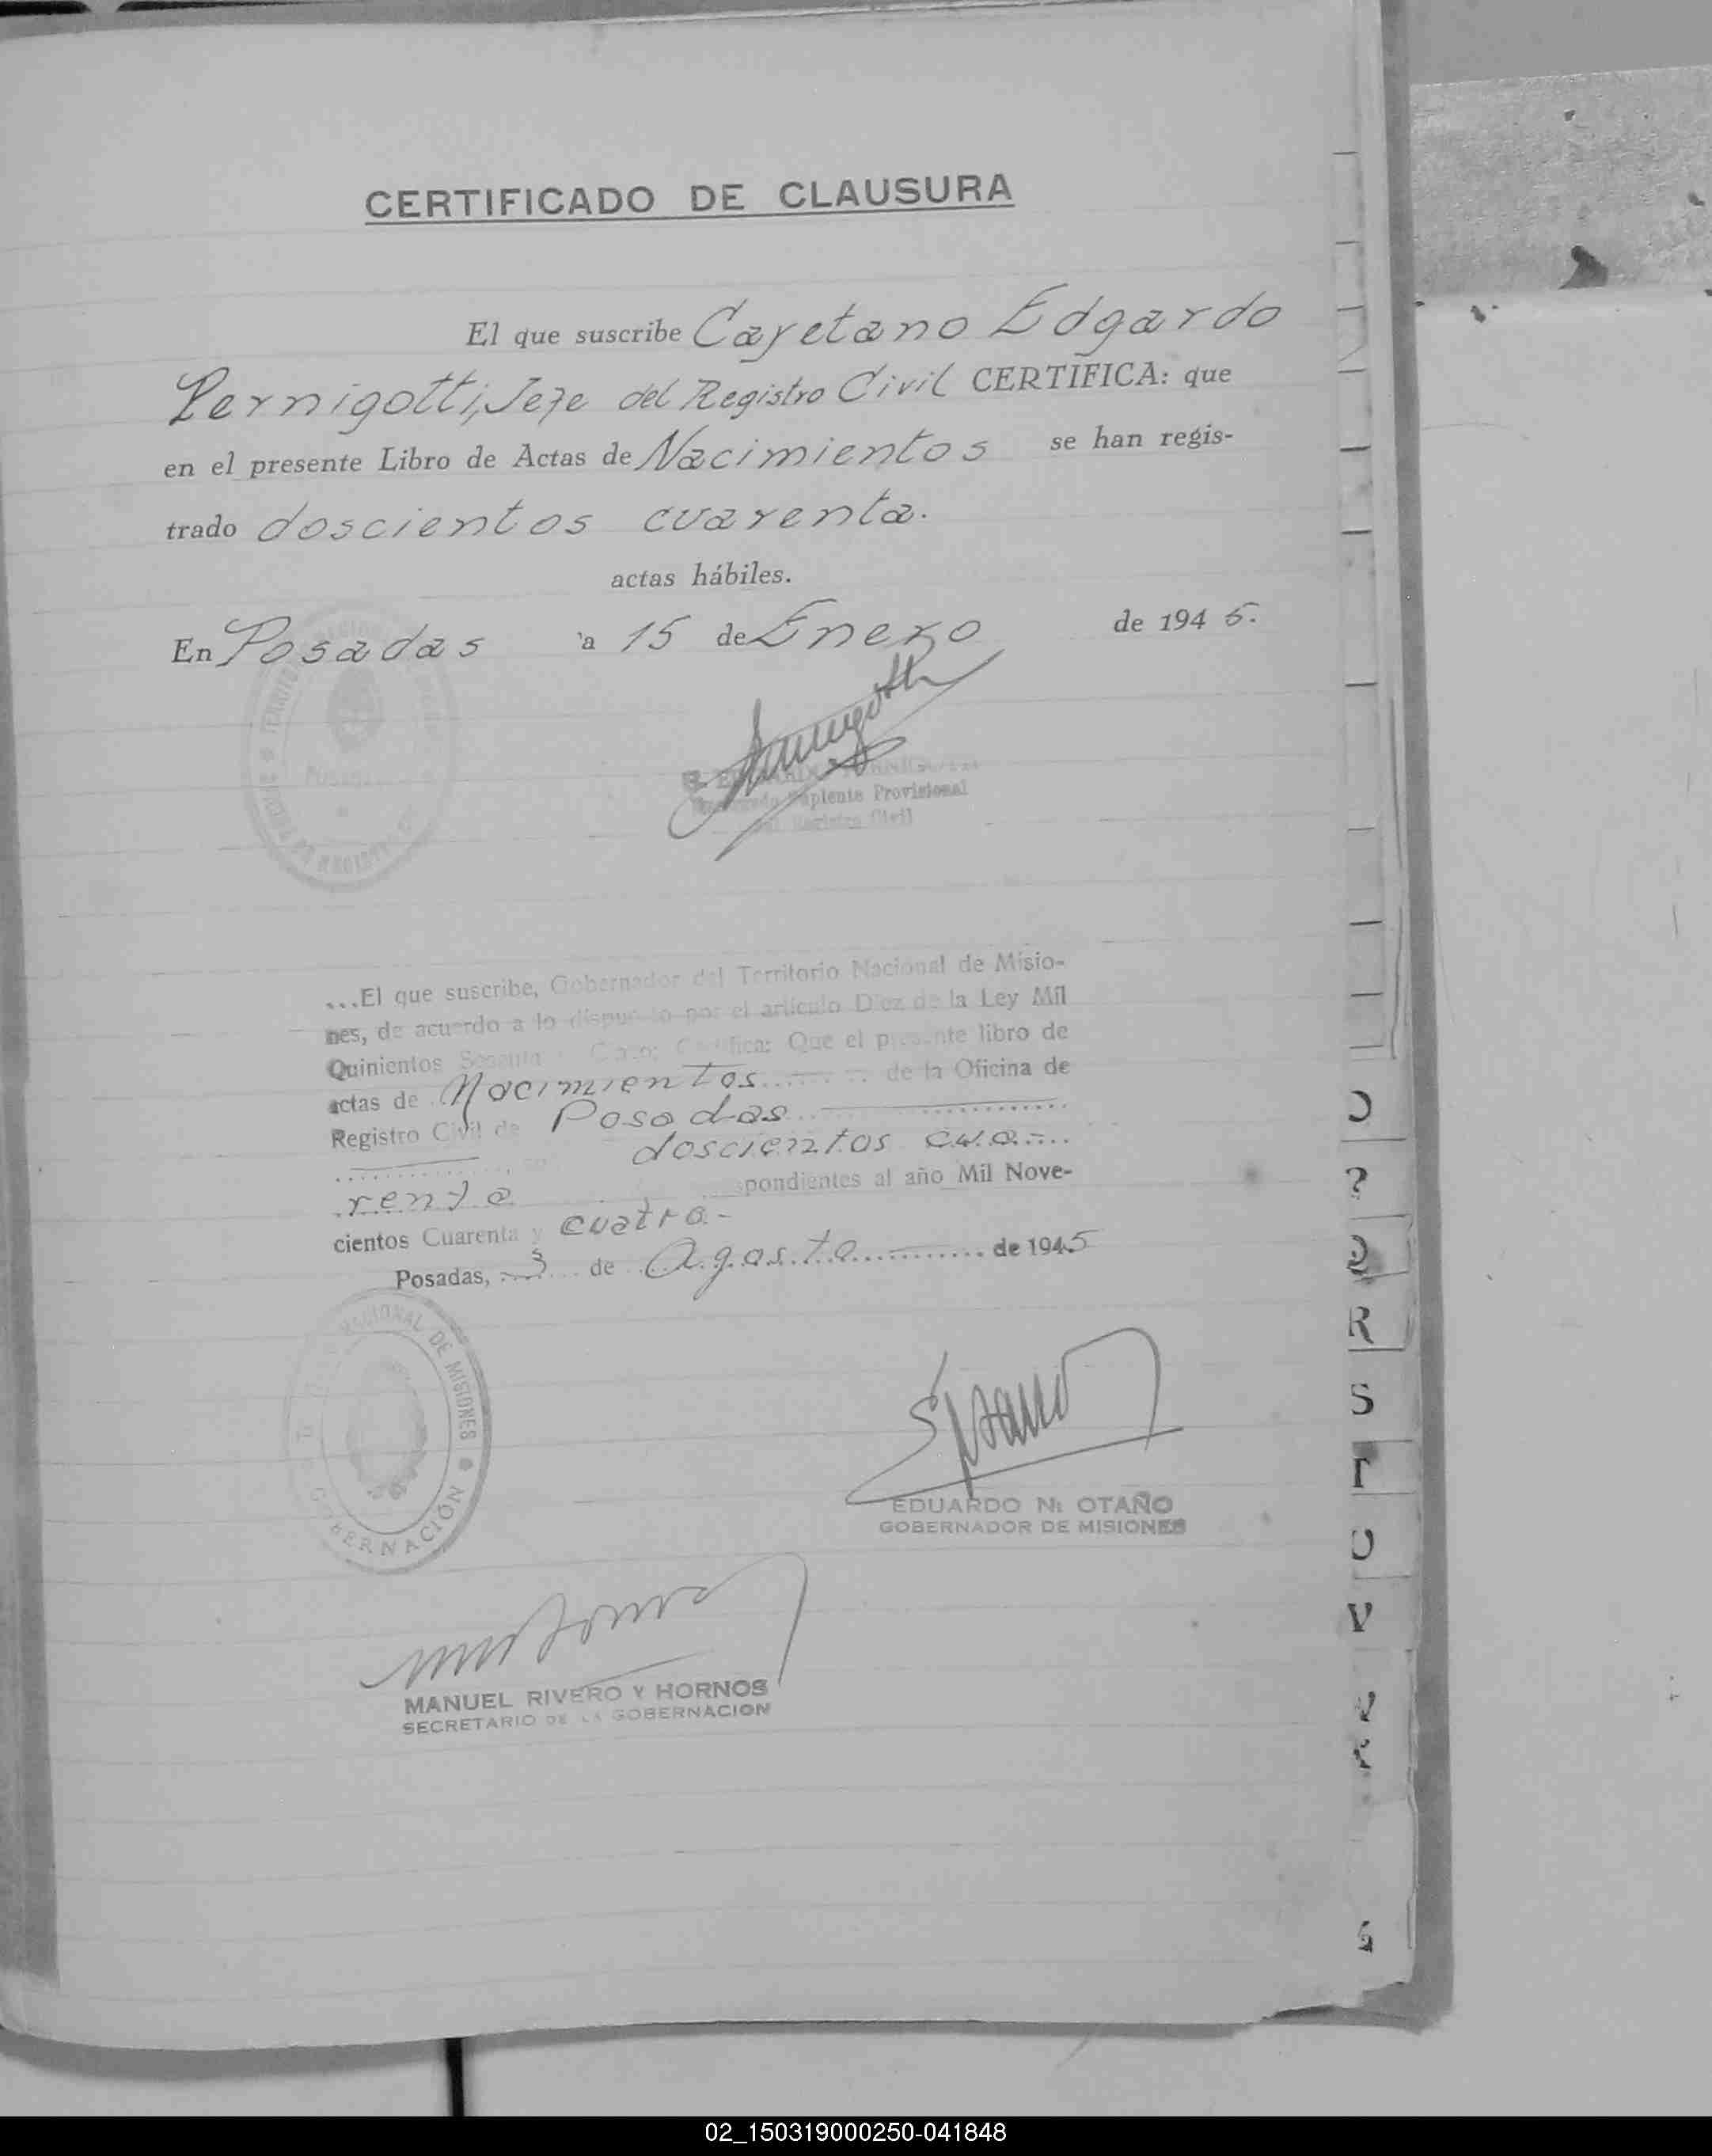 CERTIFICADO DE CLAUSURA
El que suscribe Cayetano Edgardo
Pernigotti, Jefe del Registro Civil CERTIFICA: que
en el presente Libro de Actas de Nacimientos se han regis-
trado doscientos cuarenta.
actas hábiles.
En Posadas a 15 de Enero de 1945.
Suplente Provisional
del Registro Civil
...El que suscribe, Gobernador del Territorio Nacional de Misio-
nes, de acuerdo a lo dispuesto por el artículo Diez de la Ley Mil
Quinientos Sesenta y Cinco; Certifica: Que el presente libro de
actas de Nacimientos de la Oficina de
Registro Civil de Posadas
doscientos cua-
renta pondientes al año Mil Nove-
cientos Cuarenta y cuatro-
Posadas, 3 de Agosto de 1945
NACIONAL DE MISIONES
GOBERNACIÓN
EDUARDO N. OTAÑO
GOBERNADOR DE MISIONES
MANUEL RIVERO Y HORNOS
SECRETARIO DE LA GOBERNACION
R
S
T
U
V
02_150319000250-041848